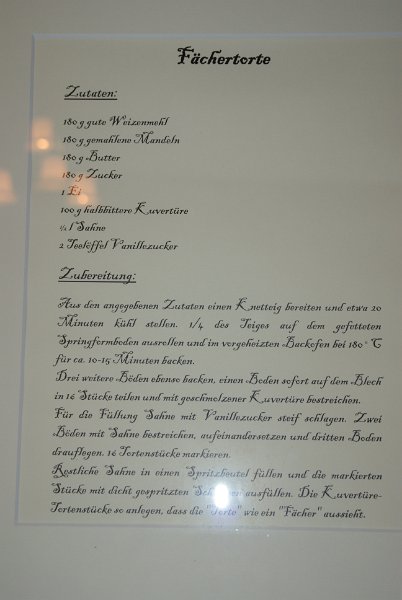 Fächertorte
Zutaten:
180 g gute Weizenmehl
180 g gemahlene Mandeln
180 g Butter
180 g Zucker
1 Ei
100 g halbbittere Kuvertüre
¼ l Sahne
2 Teelöffel Vanillezucker
Zubereitung:
Aus den angegebenen Zutaten einen Knetteig bereiten und etwa 20
Minuten kühl stellen. 1/4 des Teiges auf dem gefetteten
Springformboden ausrollen und im vorgeheizten Backofen bei 180° C
für ca. 10-15 Minuten backen.
Drei weitere Böden ebenso backen, einen Boden sofort auf dem Blech
in 16 Stücke teilen und mit geschmolzener Kuvertüre bestreichen.
Für die Füllung Sahne mit Vanillezucker steif schlagen. Zwei
Böden mit Sahne bestreichen, aufeinandersetzen und dritten Boden
drauflegen. 16 Tortenstücke markieren.
Restliche Sahne in einen Spritzbeutel füllen und die markierten
Stücke mit dicht gespritzten ausfüllen. Die Kuvertüre-
Tortenstücke so anlegen, dass die "Torte" wie ein "Fächer" aussieht.